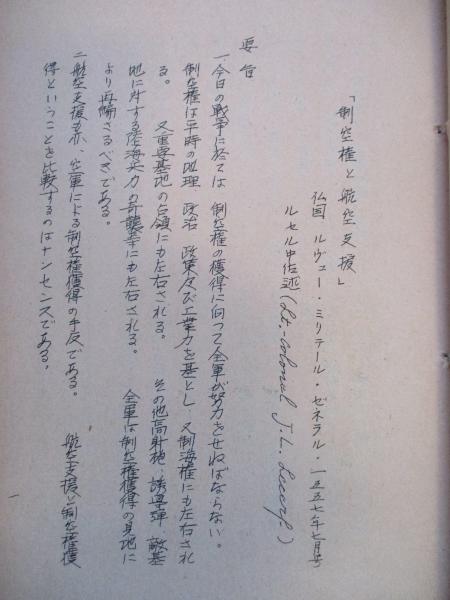 「制空権と航空支援」
仏国 ルヴュー・ミリテール・ゼネラル・一九五七年七月号
ルセル中佐述(Lt-colonel J. L. Lecerf.)
要旨
一、今日の戦争に於ては 制空権の獲得に向つて全軍が努力をせねばならない。
制空権は平時の地理 政治 政策及び工業力を基とし 又制海権にも左右され
る。 又重要基地の占領にも左右される。 その他高射砲、誘導弾 敵基
地に対する陸海兵力の奇襲等にも左右される。 全軍は制空権獲得の見地に
より再編さるべきである。
二、航空支援も亦、空軍による制空権獲得の手段である。 航空支援と制空権獲
得ということを比較するのはナンセンスである。